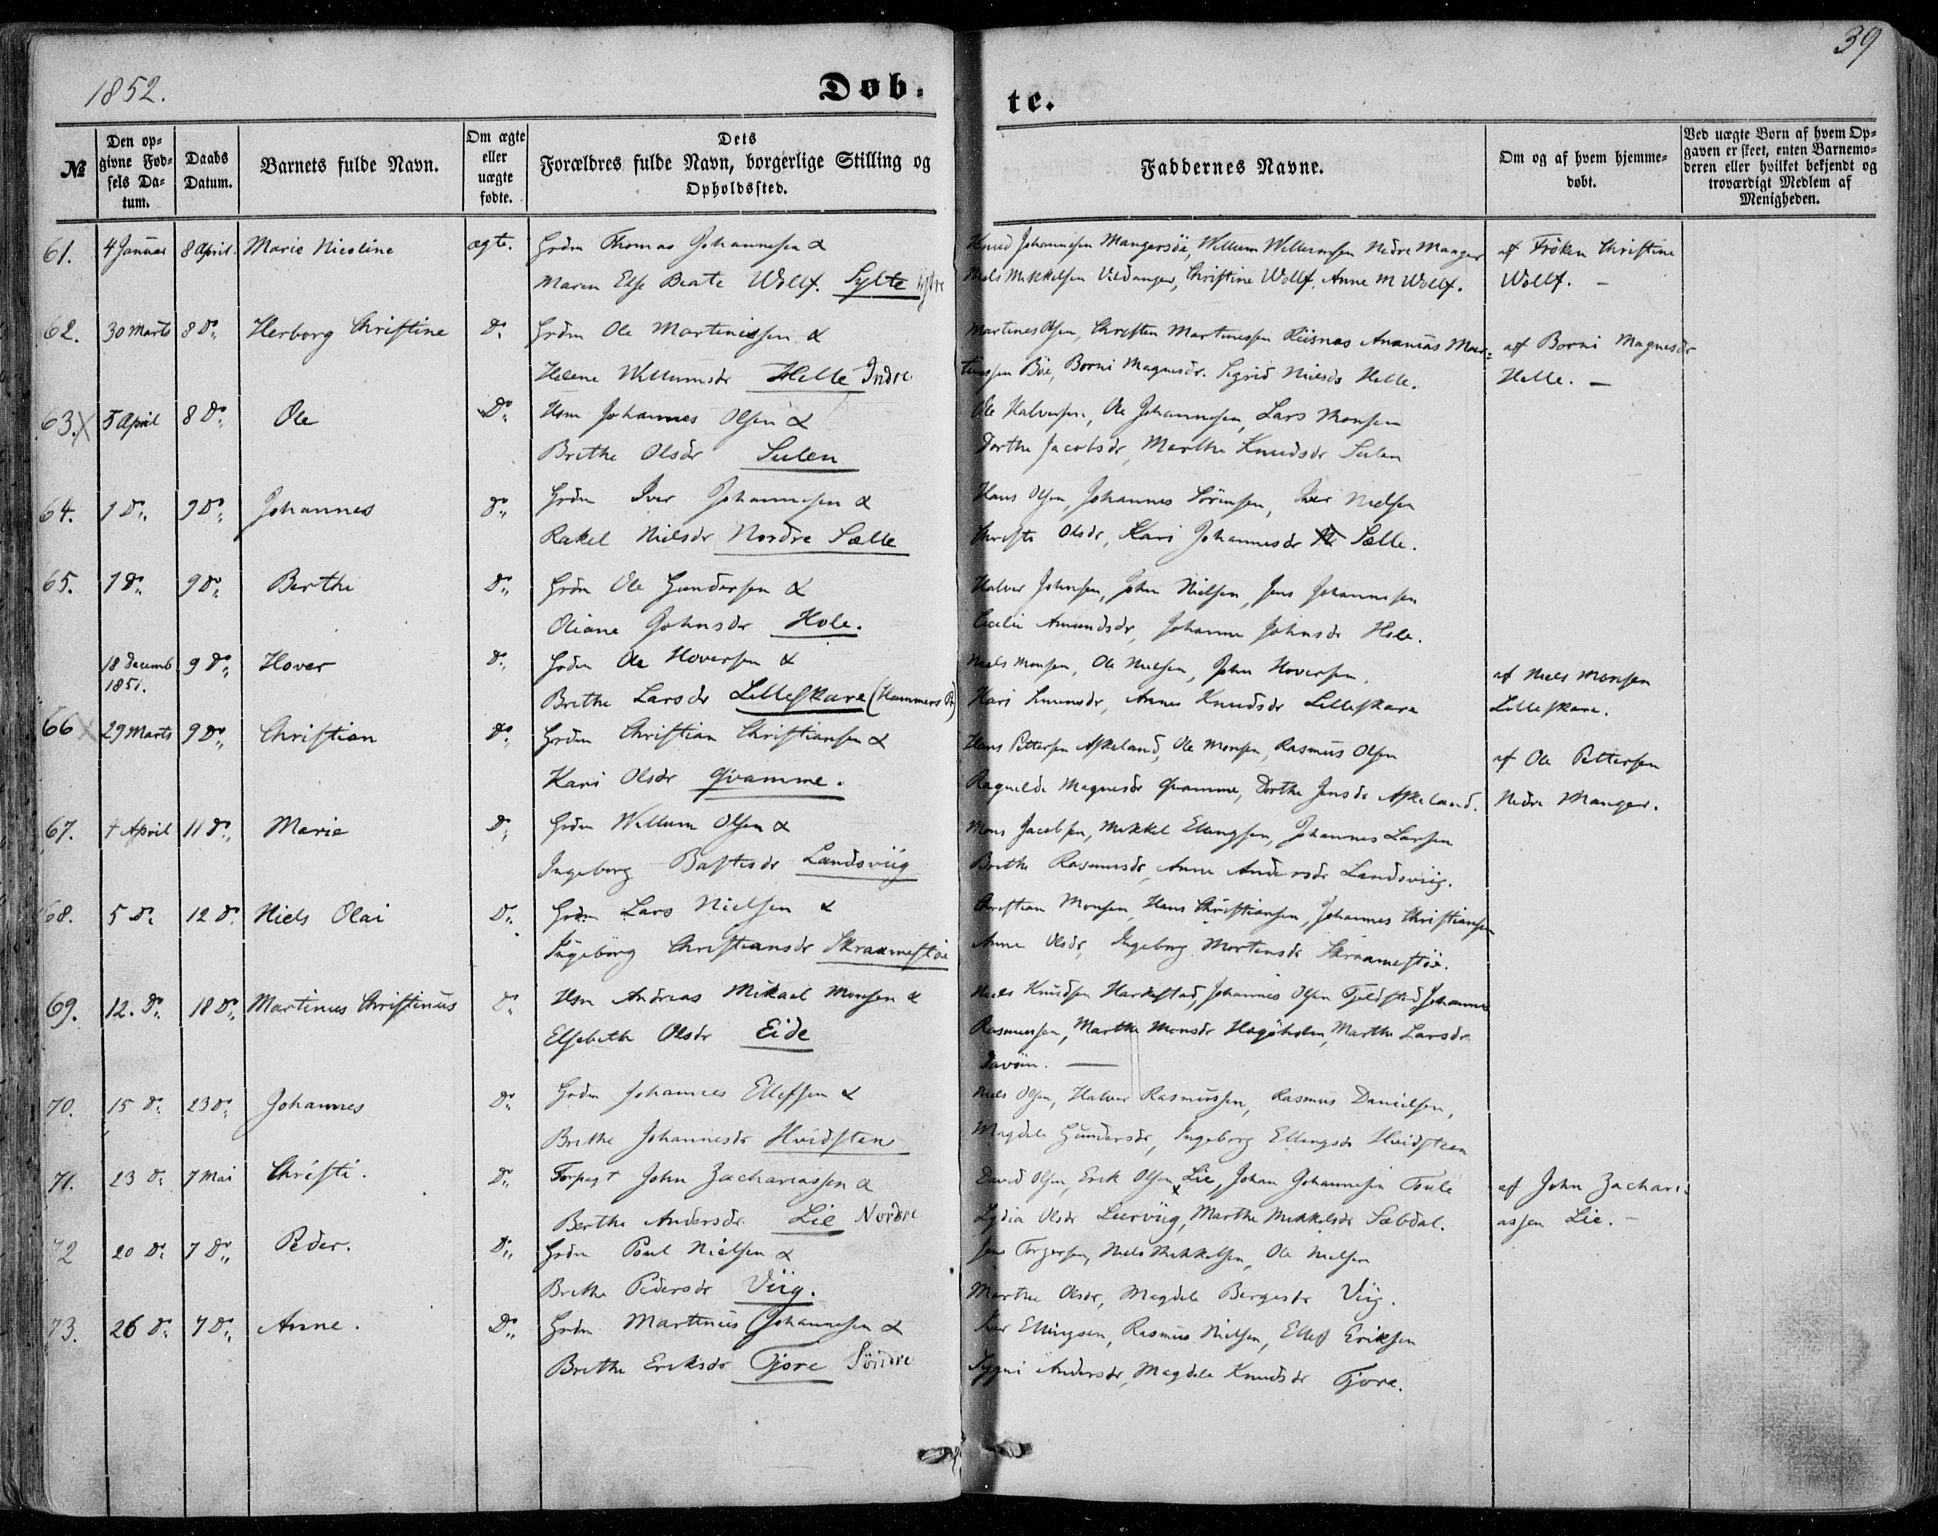 1852.
Døb-
te.
39
№
Den op-
givne Fød-
sels Da-
tum.
Daabs
Datum.
Barnets fulde Navn.
Om ægte
eller
uægte
fødte.
Dets
Forældres fulde Navn, borgerlige Stilling og
Opholdssted.
Faddernes Navne.
Om og af hvem hjemme-
døbt.
Ved uægte Børn af hvem Op-
gaven er skeet, enten Barnemo-
deren eller hvilket bekjendt og
troværdigt Medlem af
Menigheden.
61. 4 Januar 8 April. Marie Nicoline ægte. Grdm Thomas Johannesen &
Maren Else Beate Wollf. Sylte
Knud Johannesen Mangersöe, Willum Willumsen Nedre Manger
Niels Mikkelsen Vildanger, Christine Wollf. Anne M Wollf.
af Frøken Christine
Wollf. —
62. 30 Marts 8 Do Herborg Christine Do Grdm Ole Martinussen &
Helene Willumsdr Helle Indre
Martines Olsen, Christen Martinussen Riisnes Ananias Mar-
tinussen Böe, Borni Magnesdr. Sigrid Nielsdr Helle.
af Borni Magnesdr
Helle. —
63. X 5 April 8 Do Ole Do Hsm Johannes Olsen &
Brithe Olsdr Sulen
Ole Halversen, Ole Johannesen, Lars Monsen
Dorthe Jacobsdr, Marthe Knudsdr Sulen
64. 1 Do 9 Do Johannes Do Grdm Iver Johannesen &
Rakel Nielsdr Nordre Sælle
Hans Olsen, Johannes Sörensen, Iver Nielsen
Christi Olsdr, Kari Johannesdr Sælle.
65. 1 Do 9 Do Berthe Do Grdm Ole Gundersen &
Oliane Johnsdr Hole.
Halver Johnsen, John Nielsen, Jens Johannesen
Cecilie Amundsdr, Johanne Johnsdr Hole.
18 Decemb 9 Do Hover Do Grdm Ole Hoversen &
1851.
Brithe Larsdr Lilleskare (Hammers P.)
Niels Monsen, Ole Nielsen, John Hoversen.
Kari Simonsdr, Anne Knudsdr Lilleskare
af Niels Monsen
Lilleskare.
66 X 29 Marts 9 Do Christian Do Grdm Christian Christiansen &
Kari Olsdr Qvamme.
Hans Pettersen Askeland, Ole Monsen, Rasmus Olsen
Ragnilde Magnesdr Qvamme, Dorthe Jensdr Askeland.
af Ole Pettersen
Nedre Manger.
67. 4 April 11 Do Marie Do Grdm Willum Olsen &
Ingeborg Bastesdr Landsviig
Mons Jacobsen, Mikkel Ellingsen, Johannes Larsen
Brithe Rasmusdr, Anne Andersdr Landsviig.
68. 5 Do 12 Do Niels Olai Do Grdm Lars Nielsen &
Ingeborg Christiansdr Skraamestöe
Christian Monsen, Hans Christiansen, Johannes Christiansen
Anne Olsdr, Ingeborg Mortensdr Skraamestöe.
69. 12. Do 18 Do Martinus Christinus Do Hsm Andreas Mikael Monsen &
Elsebeth Olsdr Eide
Niels Knudsen Harkestad, Johannes Olsen Fjeldstad Johannes
Rasmussen, Marthe Monsdr Hagøholm, Marthe Larsdr
70. 15 Do 23 Do Johannes Do Grdm Johannes Ellefsen &
Brithe Johannesdr Hvidsten
Niels Olsen, Halver Rasmussen, Rasmus Danielsen,
Magdele Gundersdr, Ingeborg Ellingsdr Hvidsteen
71. 23 Do 7 Mai Christi. Do Forpagt John Zachariassen &
Berthe Andersdr Lie Nordre
David Olsen, Erik Olsen Lie, Johan Johannesen Toule
Lydia Olsdr Leerviig, Marthe Mikkelsdr Sæbdal.
af John Zachari-
assen Lie. —
72 20 Do 7 Do Peder. Do Grdm Poul Nielsen &
Brithe Pedersdr Viig.
Jens Torgersen, Niels Mikkelsen, Ole Nielsen
Marthe Olsdr, Magdele Bergesdr Viig.
73. 26 Do 7 Do Anne. Do Grdm Martinus Johannesen &
Brithe Eriksdr Fjore Söndre
Iver Ellingsen, Rasmus Nielsen, Ellef Eriksen
Andersdr, Magdele Knudsdr Fjore.